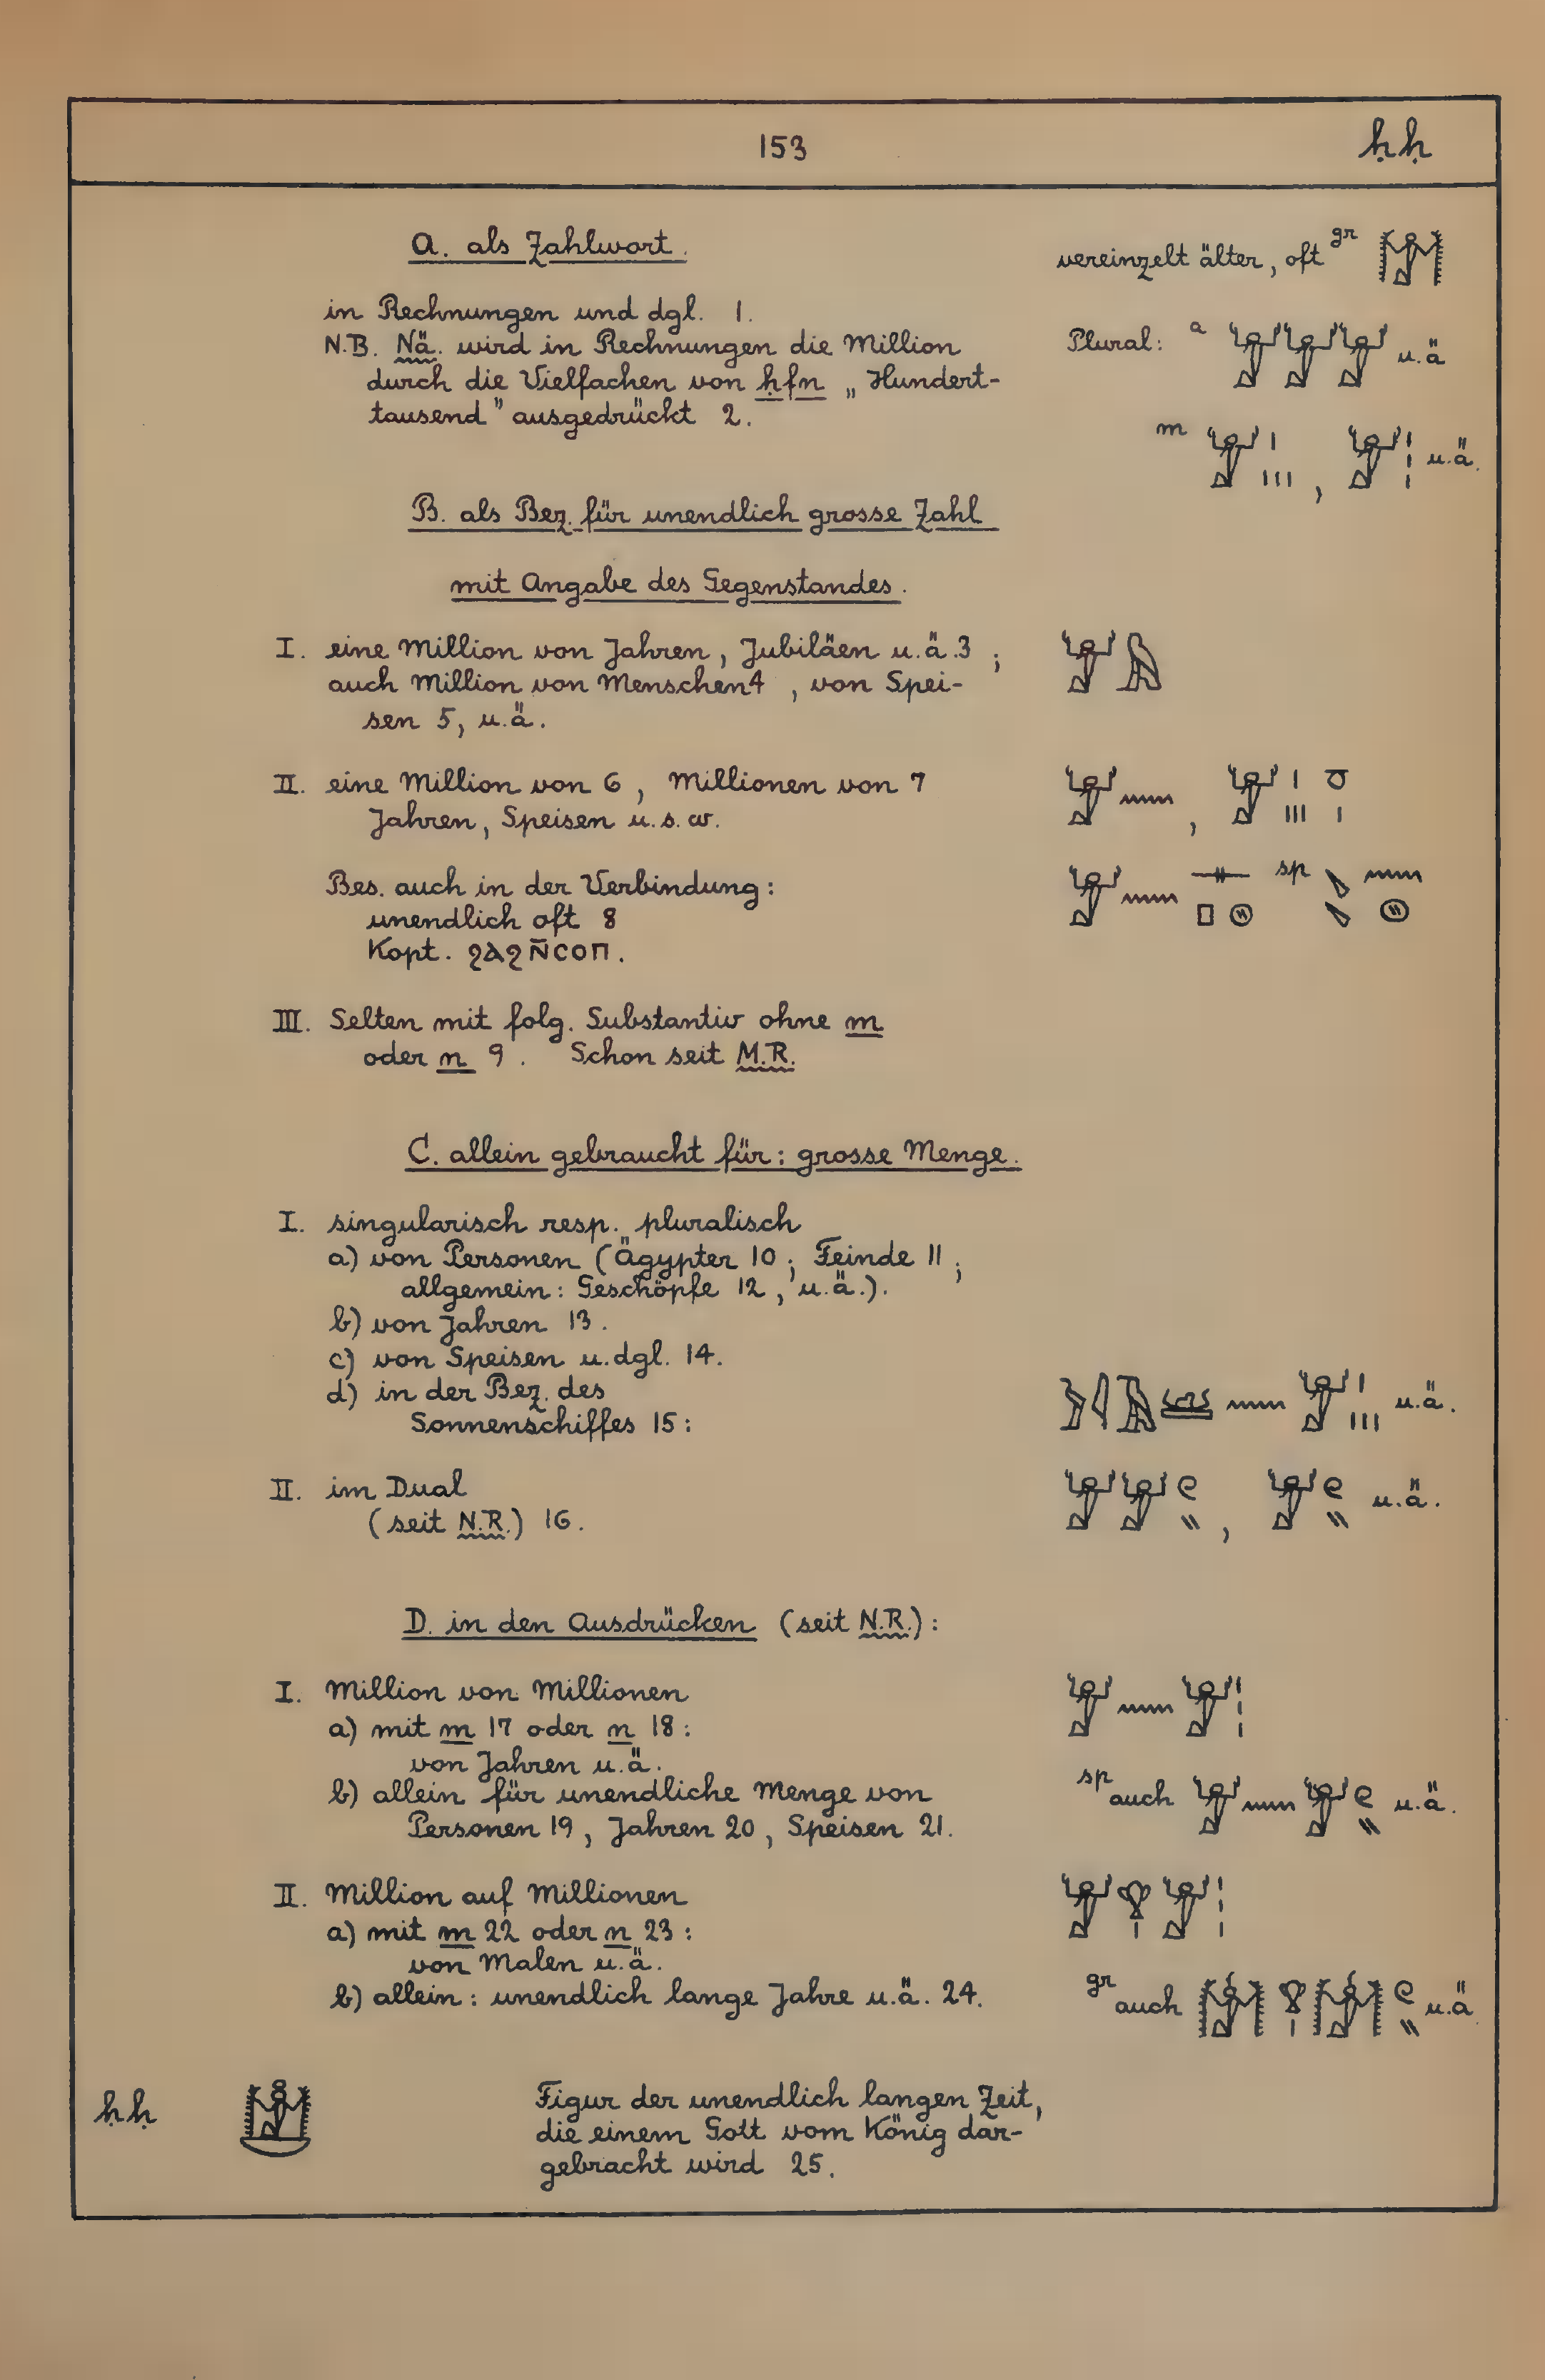 153 ḥḥ
A. als Zahlwort.
vereinzelt älter, oft gr 𓁨
in Rechnungen und dgl. 1.
N.B. Nä. wird in Rechnungen die Million
durch die Vielfachen von ḥfn „Hundert-
tausend" ausgedrückt 2.
Plural: a 𓁨𓁨𓁨 u.ä
m 𓁨𓏤𓏥, 𓁨𓏪 u.ä.
B. als Bez. für unendlich grosse Zahl
mit Angabe des Gegenstandes.
I. eine Million von Jahren, Jubiläen u.ä. 3;
auch Million von Menschen 4, von Spei-
sen 5, u.ä.
𓁨𓅓
II. eine Million von 6, Millionen von 7
Jahren, Speisen u.s.w.
𓁨𓈖, 𓁨𓏤𓏥
Bes. auch in der Verbindung:
unendlich oft 8
Kopt. ϩⲁϩ ⲛ̄ⲥⲟⲡ.
𓁨𓈖𓊃𓊪𓊗 sp
III. Selten mit folg. Substantiv ohne m
oder n 9. Schon seit M.R.
C. allein gebraucht für: grosse Menge.
I. singularisch resp. pluralisch
a) von Personen (Ägypter 10; Feinde 11;
allgemein: Geschöpfe 12, u.ä.).
b) von Jahren 13.
c) von Speisen u.dgl. 14.
d) in der Bez. des
Sonnenschiffes 15:
𓈖𓁨𓏤𓏥 u.ä.
II. im Dual
(seit N.R.) 16.
𓁨𓁨𓏲𓏭, 𓁨𓏲𓏭 u.ä.
D. in den Ausdrücken (seit N.R.):
I. Million von Millionen
a) mit m 17 oder n 18:
von Jahren u.ä.
b) allein für unendliche Menge von
Personen 19, Jahren 20, Speisen 21.
𓁨𓈖𓁨𓏪
sp auch 𓁨𓈖𓁨𓏲𓏭 u.ä.
II. Million auf Millionen
a) mit m 22 oder n 23:
von Malen u.ä.
b) allein: unendlich lange Jahre u.ä. 24.
𓁨𓁷𓏤𓁨𓏪
gr auch 𓁨𓁷𓏤𓁨𓏲𓏭 u.ä.
ḥḥ
Figur der unendlich langen Zeit,
die einem Gott vom König dar-
gebracht wird 25.